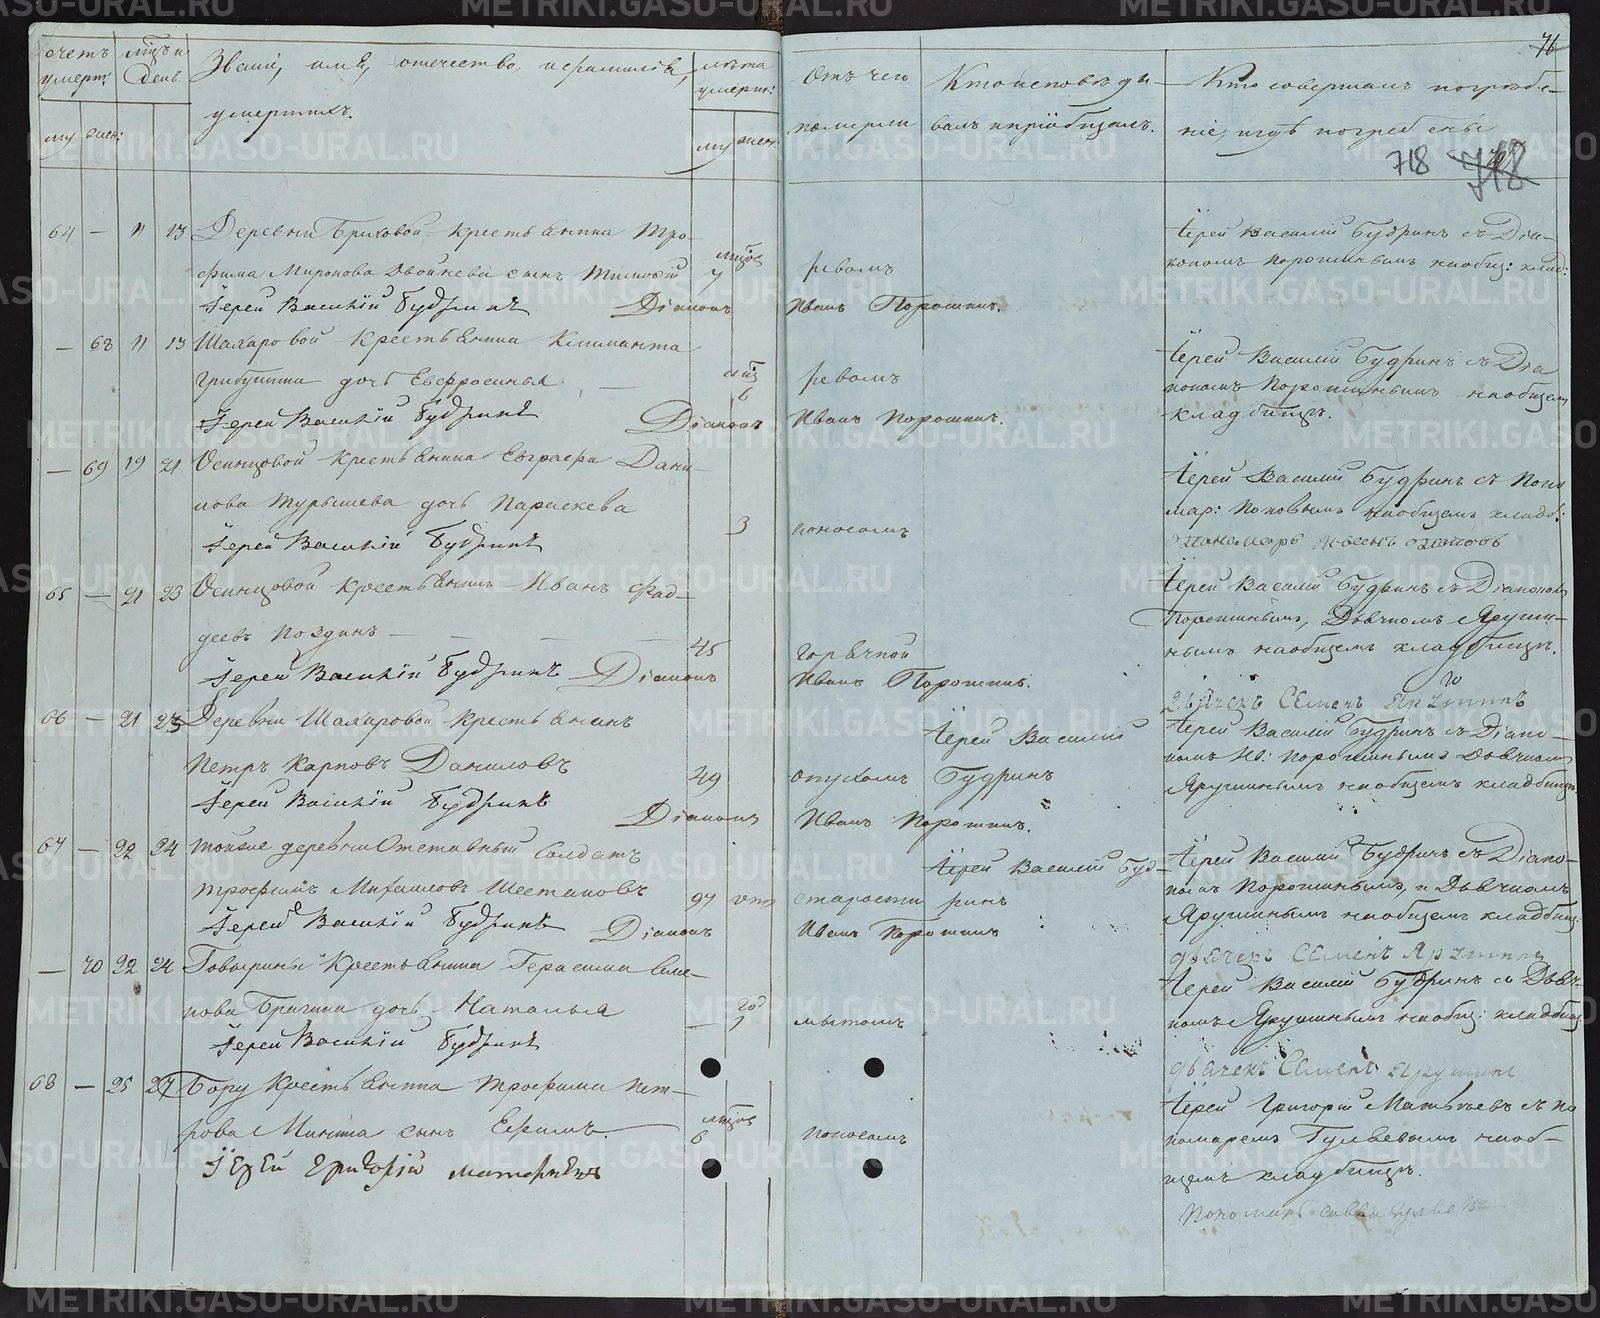 счетъ умерш: мѣсяцъ и день Званіе, имя, отчество и фамилія умершихъ. лѣта умерш: Отъ чего померли Кто исповѣдывалъ и пріобщалъ. Кто совершалъ погребеніе, и гдѣ погребены
му жен: му жен:
718
64 — 11 13 Деревни Бриковой крестьянина Тро-
фима Миронова Двойнева сынъ Тимофей мѣсяцов 7 ревомъ
Іерей Василій Будринъ съ Діа-
кономъ Порошинымъ на общ: клад:
Іерей Василій Будринъ Діаконъ Иванъ Порошинъ.
— 68 11 13 Шахаровой крестьянина Климанта
дочь Евфросинья ревомъ
Іерей Василій Будринъ съ Діа
кономъ Порошинымъ на общем
кладбищѣ.
Іерей Василій Будринъ Діаконъ Иванъ Порошинъ.
— 69 19 21 Осинцовой крестьянина Евграфа Дани-
лова Турышева дочь Параскева 3 поносомъ
Іерей Василій Будринъ съ Поно
мар: Поповымъ на общемъ кладб:
Іерей Василій Будринъ
65 — 21 23 Осинцовой крестьянинъ Иванъ Фад-
деевъ Поздинъ 45 горячкой
Іерей Василій Будринъ съ Діакономъ
Порошинымъ, Дьячкомъ Яруши-
нымъ на общемъ кладбищѣ.
Іерей Василій Будринъ Діаконъ Иванъ Порошинъ.
Дьячекъ Семенъ Ярушинъ
66 — 21 23 Деревни Шахаровой крестьянинъ
Петръ Карповъ Даниловъ 49 опухомъ Іерей Василій Будринъ
Іерей Василій Будринъ съ Діако-
номъ Ив: Порошинымъ Дьячкомъ
Ярушинымъ на общемъ кладбищѣ
Іерей Василій Будринъ Діаконъ Иванъ Порошинъ.
67 — 22 24 Тойже деревни Отставный Солдатъ
Трофимъ Михайловъ Шестаковъ 97 отъ старости Іерей Василій Будринъ
Іерей Василій Будринъ съ Діако-
номъ Порошинымъ, и Дьячкомъ
Ярушинымъ на общемъ кладбищ:
Іерей Василій Будринъ Діаконъ Иванъ Порошинъ
дьячекъ Семенъ Ярушинъ
— 70 22 24 крестьянина Герасима Семе-
нова Брагина дочь Наталья год 1 мытомъ
Іерей Василій Будринъ съ Дьяч-
комъ Ярушинымъ на общ: кладбищ
Іерей Василій Будринъ
дьячекъ Семенъ Ярушинъ
68 — 25 27 Бору Крестьянина Трофима Пет-
рова Минина сынъ Ефимъ. мѣсяцов 6 поносомъ
Іерей Григорій Матвѣевъ съ по
номаремъ Гуляевымъ на об-
щемъ кладбищѣ.
Іерей Григорій Матвѣевъ
Пономарь Савва Гуляевъ